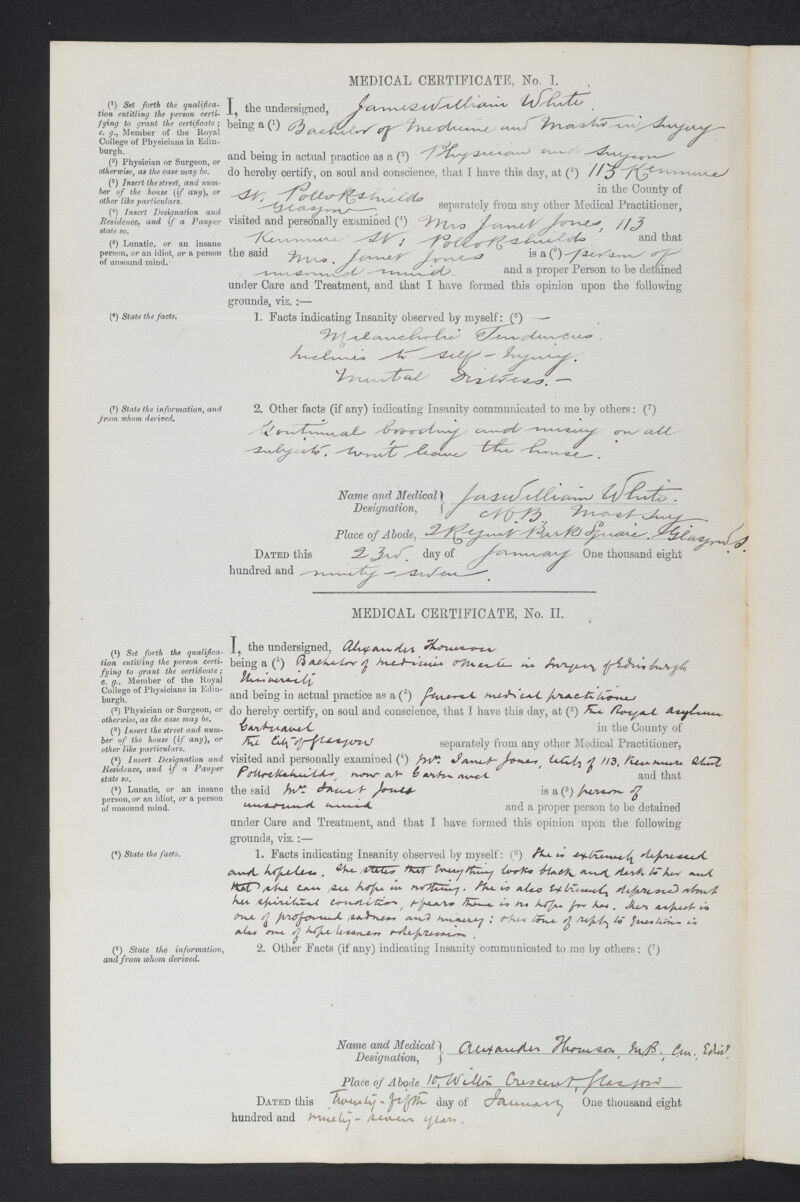 MEDICAL CERTIFICATE, No. I.
(¹) Set forth the qualifica-
tion entitling the person certi-
fying to grant the certificate;
e. g., Member of the Royal
College of Physicians in Edin-
burgh.
(²) Physician or Surgeon, or
otherwise, as the case may be.
(³) Insert the street, and num-
ber of the house (if any), or
other like particulars.
(⁴) Insert Designation and
Residence, and if a Pauper
state so.
(⁵) Lunatic, or an insane
person, or an idiot, or a person
of unsound mind.
I, the undersigned, James William White.
being a (¹) Bachelor of Medicine and Master in Surgery
and being in actual practice as a (²) Physician and Surgeon
do hereby certify, on soul and conscience, that I have this day, at (³) 113 Kenmure
St. Pollokshields in the County of
Glasgow separately from any other Medical Practitioner,
visited and personally examined (⁴) Mrs Janet Jones, 113
Kenmure St, Pollokshields and that
the said Mrs. Janet Jones is a (⁵) person of
unsound mind and a proper Person to be detained
under Care and Treatment, and that I have formed this opinion upon the following
grounds, viz. :—
(⁶) State the facts.
1. Facts indicating Insanity observed by myself: (⁶) —
Melancholic Tendencies.
Inclines to self-Injury.
Mental Distress. —
(⁷) State the information, and
from whom derived.
2. Other facts (if any) indicating Insanity communicated to me by others: (⁷)
Continual brooding and musing on all
subjects. won't leave the house.
Name and Medical Designation, Jas William White.
M.B. Mast Surg
Place of Abode, 2 Regent Park Square. Glasgow S.
DATED this 23rd. day of January One thousand eight
hundred and ninety-seven.
MEDICAL CERTIFICATE, No. II.
(¹) Set forth the qualifica-
tion entitling the person certi-
fying to grant the certificate;
e. g., Member of the Royal
College of Physicians in Edin-
burgh.
(²) Physician or Surgeon, or
otherwise, as the case may be.
(³) Insert the street and num-
ber of the house (if any), or
other like particulars.
(⁴) Insert Designation and
Residence, and if a Pauper
state so.
(⁵) Lunatic, or an insane
person, or an idiot, or a person
of unsound mind.
I, the undersigned, Alexander Thomson
being a (¹) Bachelor of Medicine & Master in Surgery of Edinburgh
University
and being in actual practice as a (²) general medical practitioner
do hereby certify, on soul and conscience, that I have this day, at (³) the Royal Asylum
Gartnavel in the County of
the City of Glasgow separately from any other Medical Practitioner,
visited and personally examined (⁴) Mrs. Janet Jones, lately of 113, Kenmure Street
Pollokshields, now at Gartnavel and that
the said Mrs. Janet Jones is a (⁵) person of
unsound mind and a proper person to be detained
under Care and Treatment, and that I have formed this opinion upon the following
grounds, viz. :—
(⁶) State the facts.
1. Facts indicating Insanity observed by myself: (⁶) She is extremely depressed
and hopeless. She states that everything looks black and dark to her and
that she can see hope in nothing. She is also extremely depressed about
her spiritual condition, & fears there is no hope for her. Her aspect is
one of profound sadness and misery: & her tone of reply to questions is
also one of hopelessness & depression.
(⁷) State the information,
and from whom derived.
2. Other Facts (if any) indicating Insanity communicated to me by others: (⁷)
Name and Medical Designation, Alexander Thomson, M.B., C.M., Edin.
Place of Abode 10, Wilton Crescent, Glasgow
DATED this Twenty-fifth day of January One thousand eight
hundred and ninety-seven years.